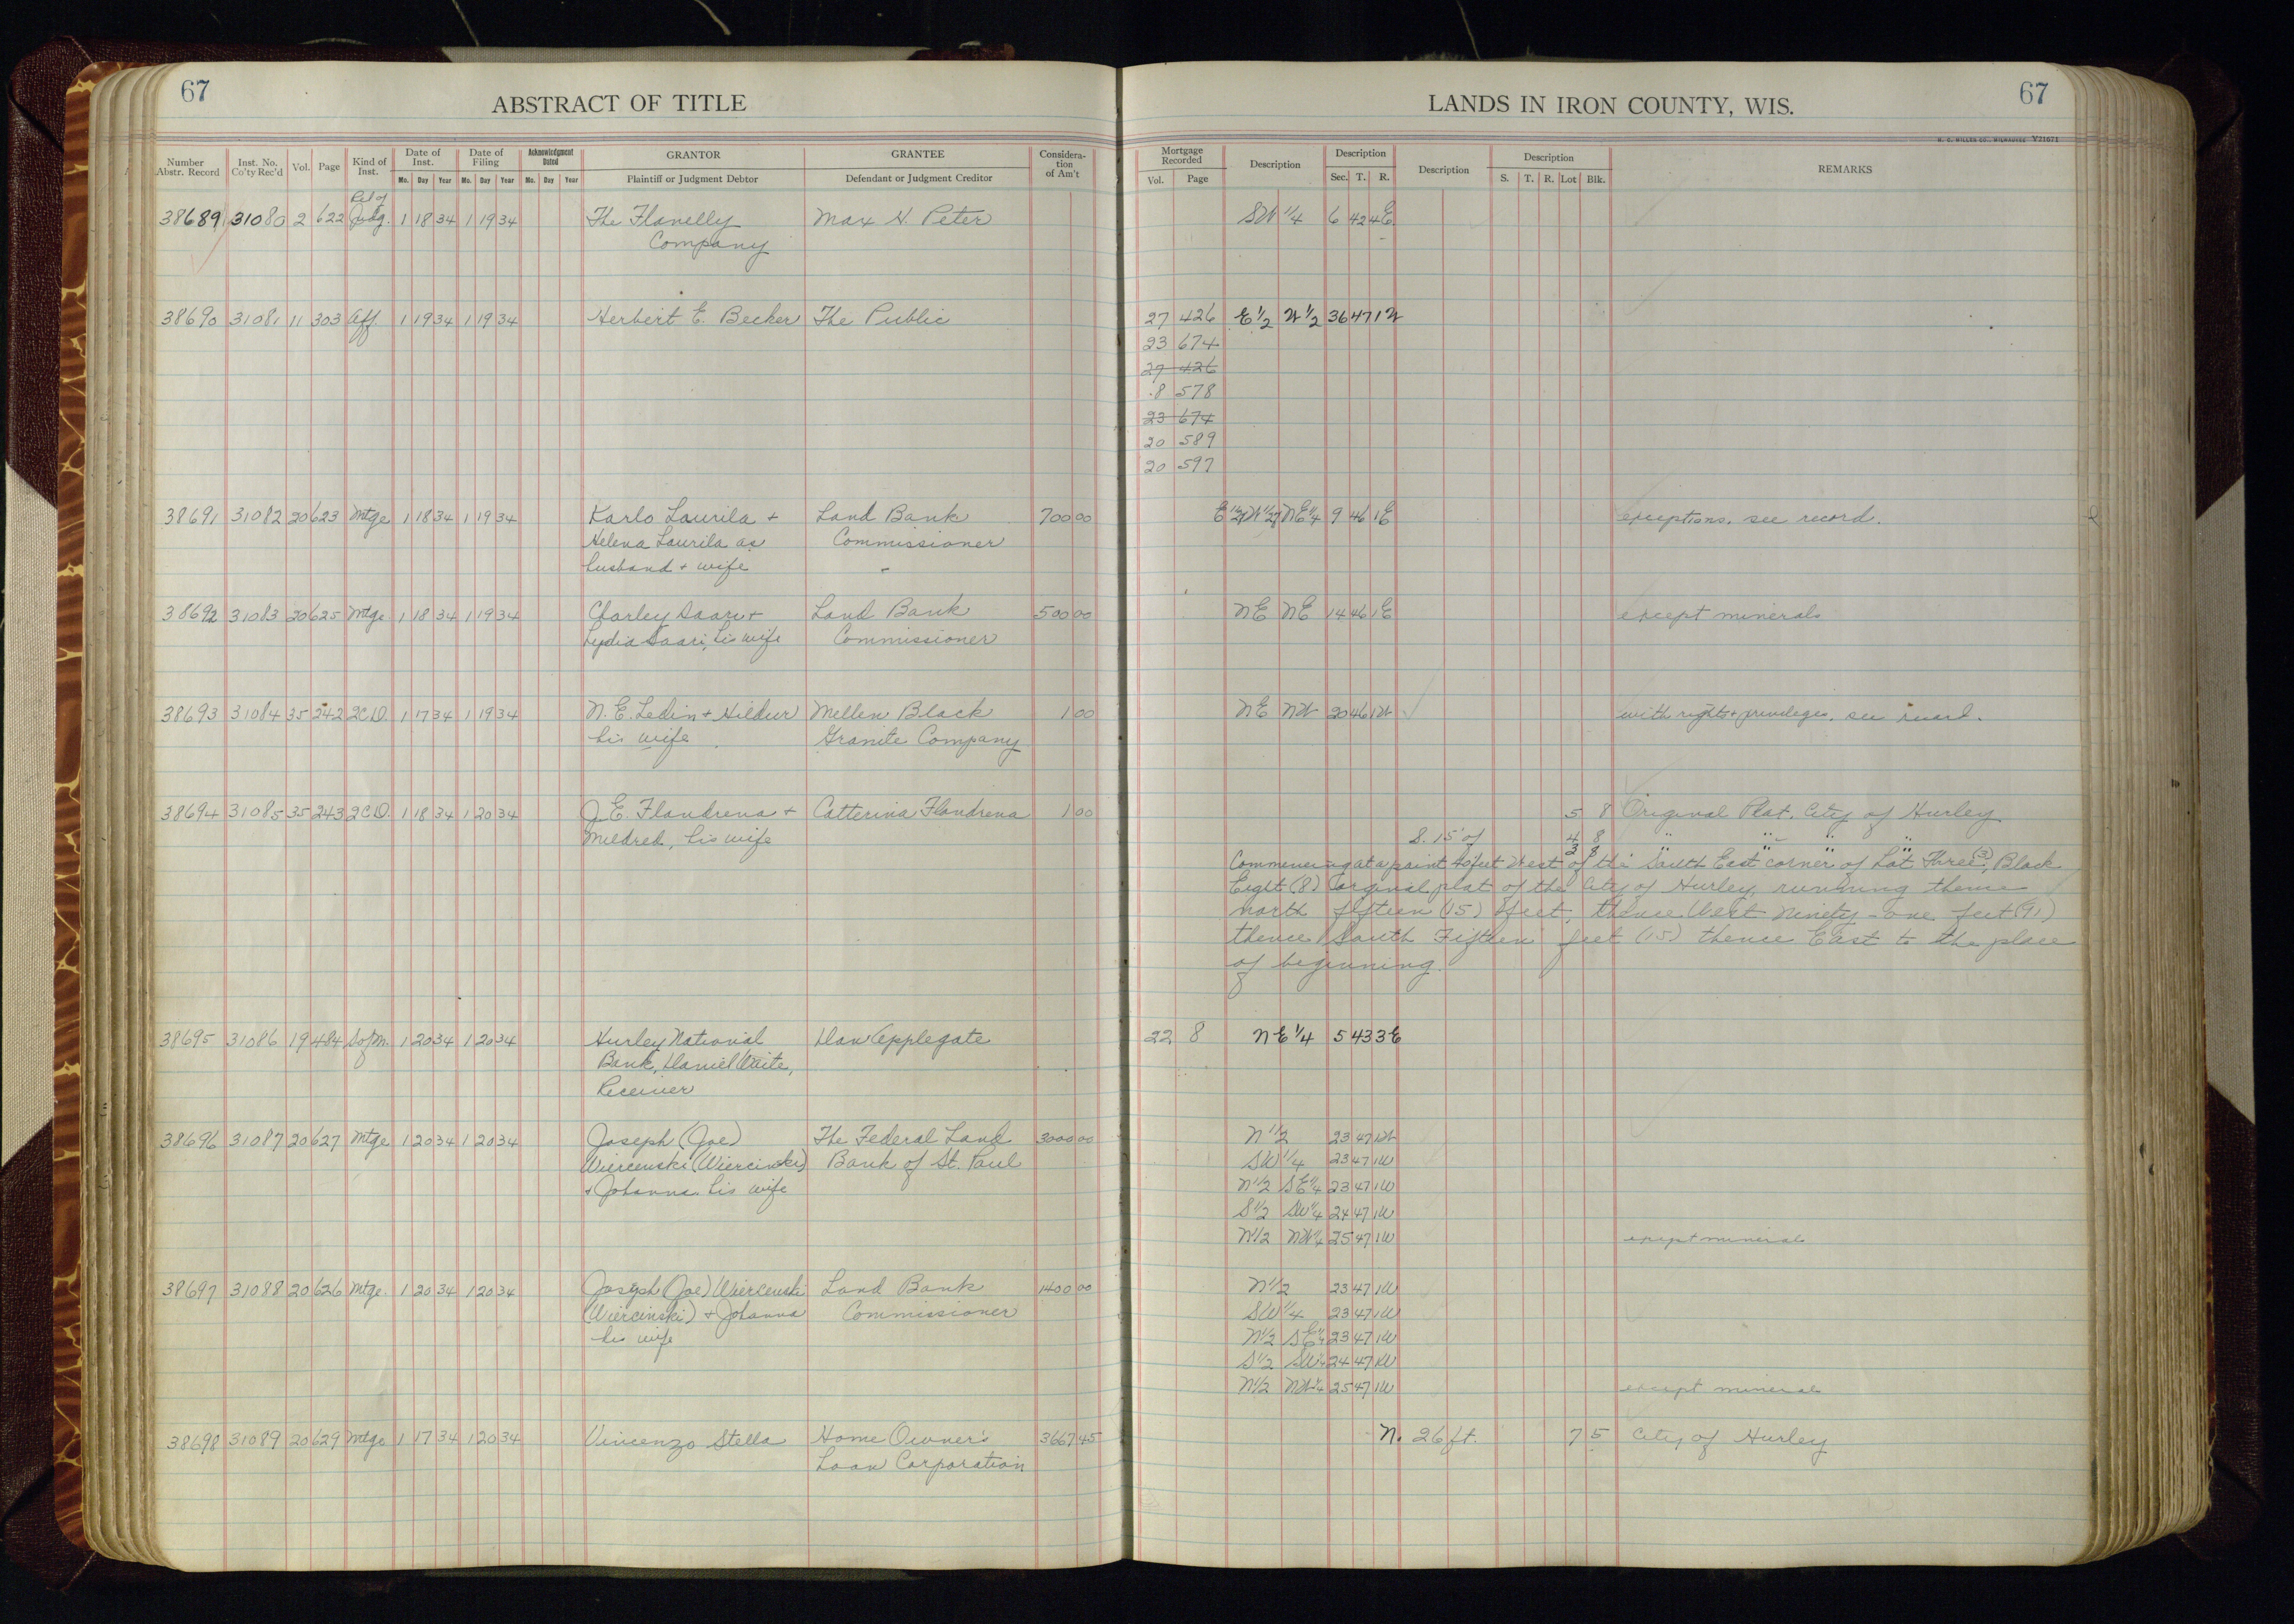 67
ABSTRACT OF TITLE
Number Abstr. Record
Inst. No. Co'ty Rec'd
Vol.
Page
Kind of Inst.
Date of Inst.
Mo. Day Year
Date of Filing
Mo. Day Year
Acknowledgment Dated
Mo. Day Year
GRANTOR
Plaintiff or Judgment Debtor
GRANTEE
Defendant or Judgment Creditor
Considera-
tion
of Am't
LANDS IN IRON COUNTY, WIS.
67
H. C. MILLER CO., MILWAUKEE V21671
Mortgage Recorded
Vol. Page
Description
Description
Sec. T. R.
Description
Description
S. T. R. Lot Blk.
REMARKS
Rel of
38689 31080 2 622 Judg. 1 18 34 1 19 34 The Flanelly Max H. Peter SW 1/4 6 42 4E
Company
38690 31081 11 303 Aff. 1 19 34 1 19 34 Herbert E. Becker The Public 27 426 E 1/2 W 1/2 36 47 1W
23 674
27 426
8 578
23 674
20 589
20 597
38691 31082 20 623 Mtge 1 18 34 1 19 34 Karlo Laurila + Land Bank 700 00 NE 1/4 9 46 1E exceptions, see record.
Helena Laurila as Commissioner
husband + wife
38692 31083 20 625 Mtge 1 18 34 1 19 34 Charley Saari + Land Bank 500 00 NE NE 14 46 1E except minerals
Lydia Saari, his wife Commissioner
38693 31084 35 242 2CD. 1 17 34 1 19 34 N. E. Ledin + Hildur Mellen Black 1 00 NE NW 20 46 1W with rights + privileges, see record.
his wife Granite Company
38694 31085 35 243 2CD. 1 18 34 1 20 34 J. E. Flandrena + Catterina Flandrena 1 00 5 8 Original Plat, City of Hurley
Mildred, his wife S. 15' of 4 8 " " "
3 8 " " "
Commencing at a point feet West of the South East corner of Lot Three (3), Block
Eight (8) Orginal plat of the City of Hurley, running thence
north fifteen (15) feet, thence West Ninety-one feet (91)
thence South Fifteen feet (15) thence East to the place
of beginning.
38695 31086 19 484 S of M. 1 20 34 1 20 34 Hurley National Dan Applegate 22 8 NE 1/4 5 43 3E
Bank, Daniel Waite,
Receiver
38696 31087 20 627 Mtge 1 20 34 1 20 34 Joseph (Joe) The Federal Land 3000 00 N 1/2 23 47 1W
Wiercenski (Wiercinski) Bank of St. Paul SW 1/4 23 47 1W
+ Johanna his wife N 1/2 SE 1/4 23 47 1W
S 1/2 SW 1/4 24 47 1W
N 1/2 NW 1/4 25 47 1W except mineral
38697 31088 20 626 Mtge. 1 20 34 1 20 34 Joseph (Joe) Wiercenski Land Bank 1400 00 N 1/2 23 47 1W
(Wiercinski) + Johanna Commissioner SW 1/4 23 47 1W
his wife N 1/2 SE 1/4 23 47 1W
S 1/2 SW 1/4 24 47 1W
N 1/2 NW 1/4 25 47 1W except mineral
38698 31089 20 629 Mtge 1 17 34 1 20 34 Vincenzo Stella Home Owner's 3667 45 N. 26 ft. 7 5 City of Hurley
Loan Corporation